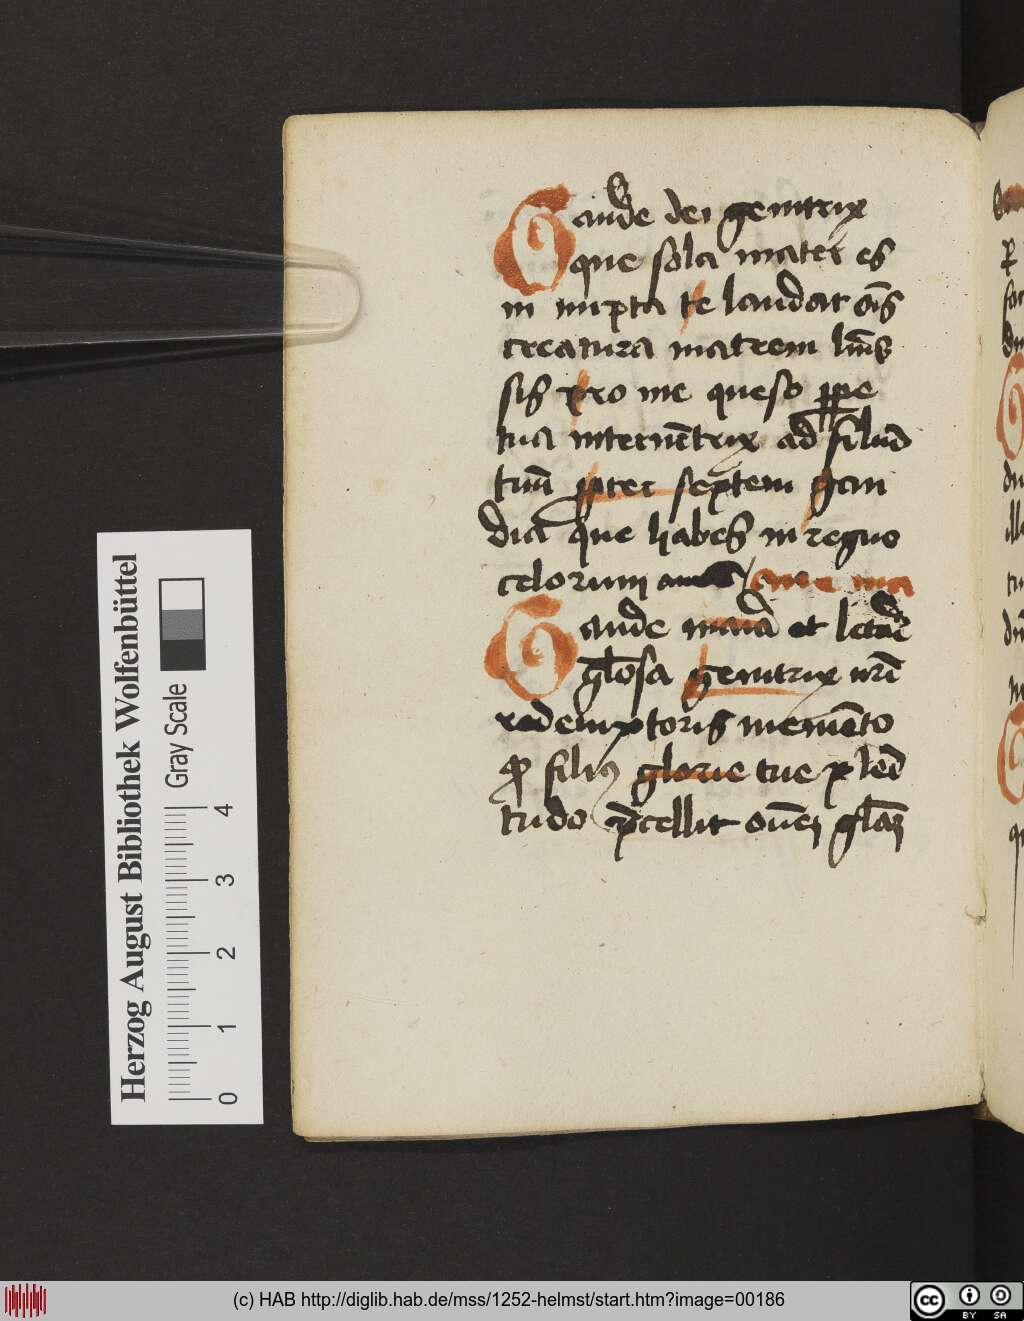 Gaude dei genitrix
que sola mater es
in nupta te laudat oīs
creatura matrem lūis
sis pro me queso ꝑpe
tua interuētrix ad filiū
tuū ꝓpter septem gau
dia que habes in regno
celorum amen aue ma
Gaude maria et letare
glosa genitrix nrī
redemptoris memēto
ꝙ filiꝰ glorie tue pleni
tudo p̄cellit
Herzog August Bibliothek Wolfenbüttel
Gray Scale
0 1 2 3 4
(c) HAB http://diglib.hab.de/mss/1252-helmst/start.htm?image=00186
cc BY SA